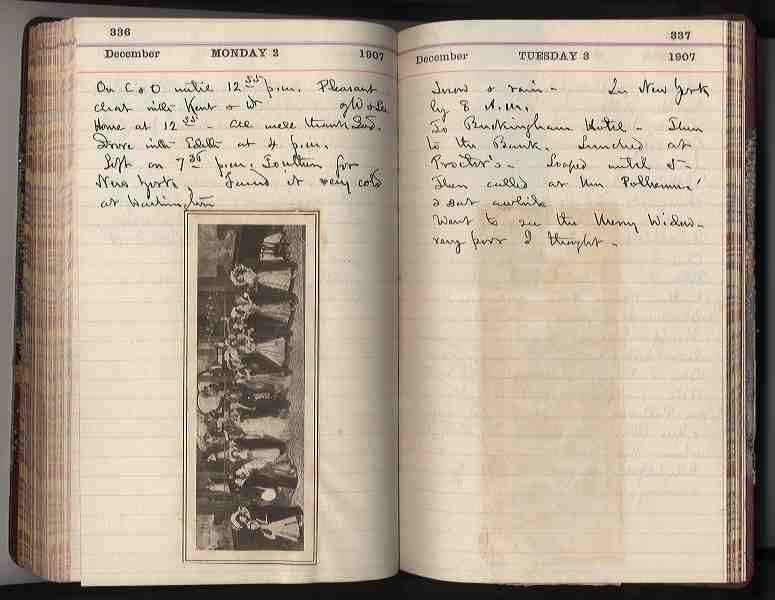 336
December MONDAY 2 1907
On C & O until 12 55 p.m. Pleasant
chat with Kent & of W & Lee
Home at 12 55 - all well thank God.
Drove with Edith at 4 p.m.
Left on 7 35 p.m. Southern for
New York. Found it very cold
at Washington
337
December TUESDAY 3 1907
Snow & rain - In New York
by 8 A.M.
To Buckingham Hotel - Then
to the Bank. Lunched at
Proctor's - Loafed until 5 -
Then called at
& sat awhile
Went to see the Merry Widow -
very poor I thought -